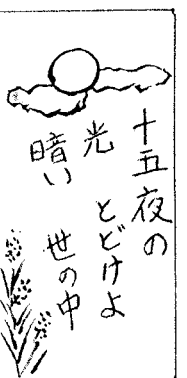 十五夜の
光 とどけよ
暗い 世の中